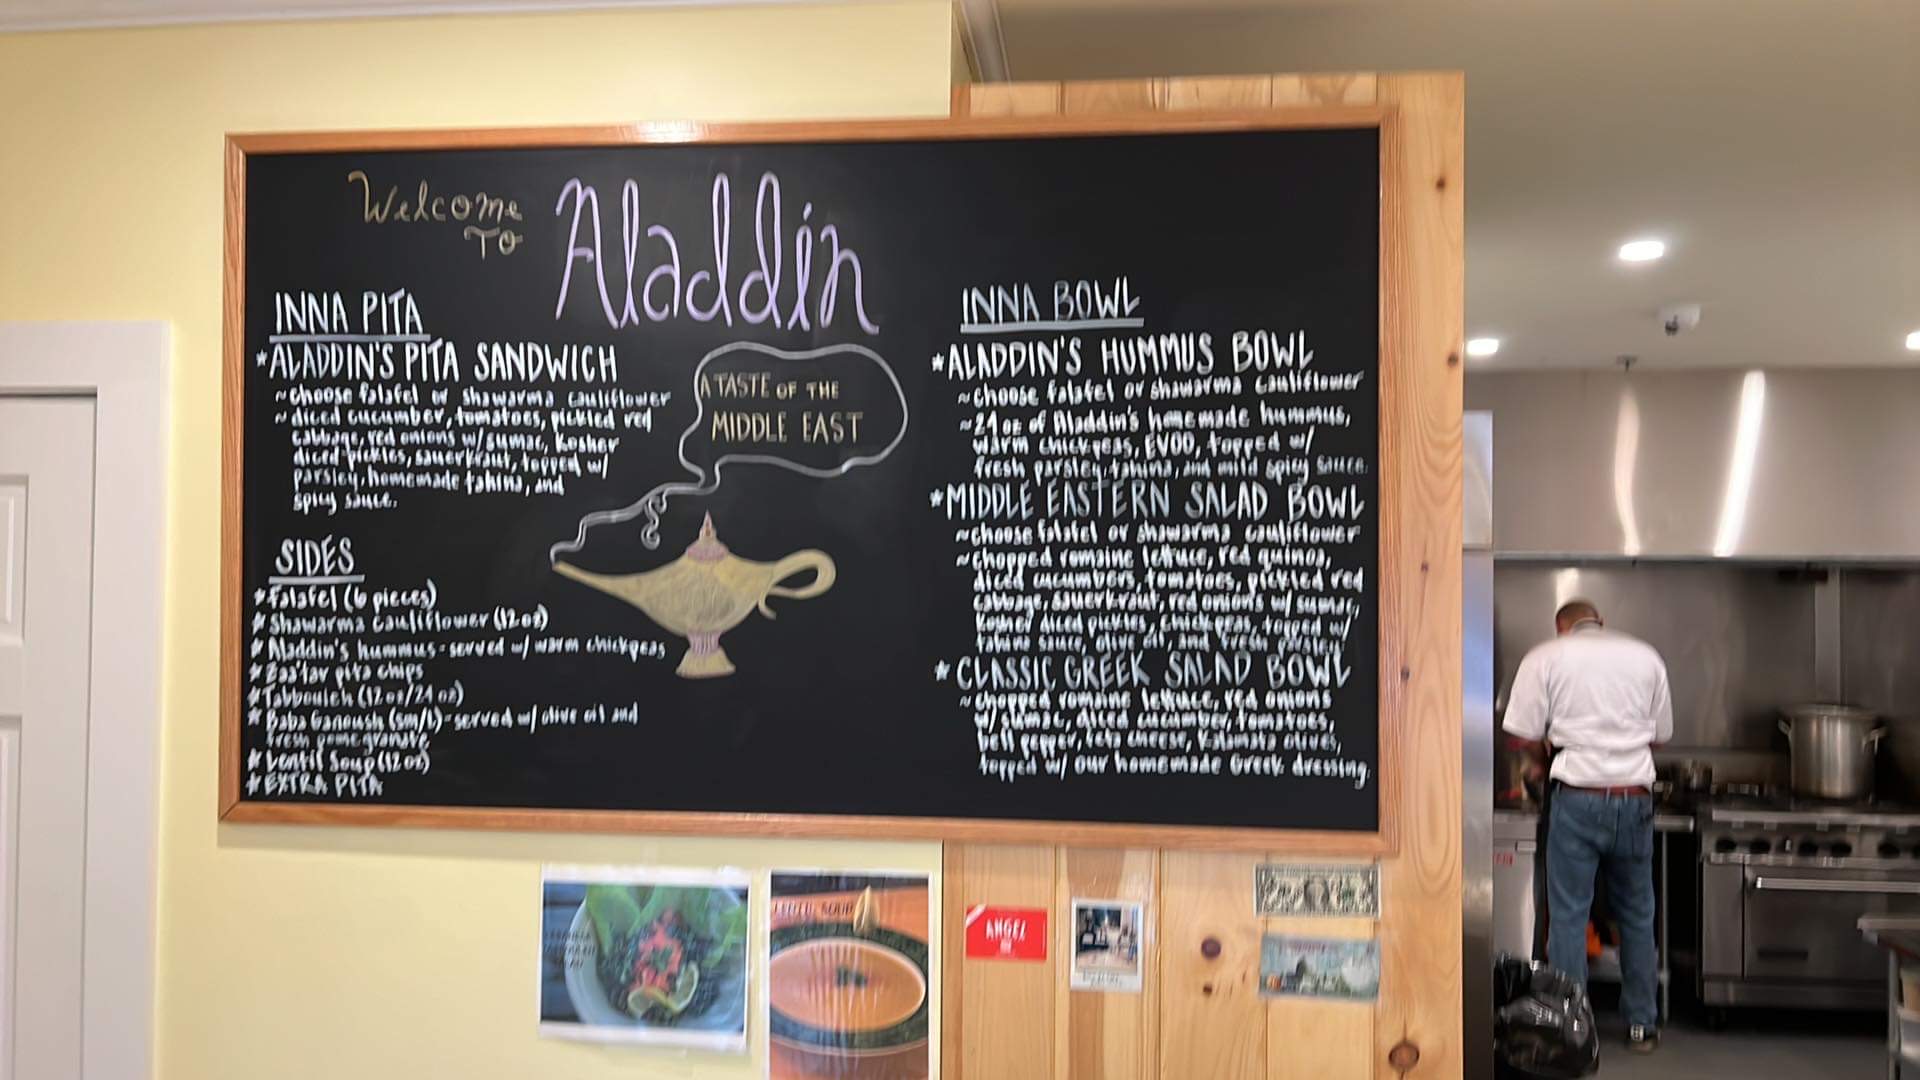 Welcome
To
Aladdin
A TASTE OF THE
MIDDLE EAST
INNA PITA
*ALADDIN'S PITA SANDWICH
~choose falafel or shawarma cauliflower
~diced cucumber, tomatoes, pickled red
cabbage, red onions w/ sumac, kosher
diced pickles, sauerkraut, topped w/
parsley, homemade tahina, and
spicy sauce.
SIDES
*Falafel (6 pieces)
*Shawarma cauliflower (12 oz)
*Aladdin's hummus - served w/ warm chickpeas
*Zaa'tar pita chips
*Tabbouleh (12 oz/24 oz)
*Baba Ganoush (sm/L) - served w/ olive oil and
fresh pomegranate
*Lentil Soup (12 oz)
*EXTRA PITA
INNA BOWL
*ALADDIN'S HUMMUS BOWL
~choose falafel or shawarma cauliflower
~24 oz of Aladdin's homemade hummus,
warm chickpeas, EVOO, topped w/
fresh parsley, tahina, and mild spicy sauce.
*MIDDLE EASTERN SALAD BOWL
~choose falafel or shawarma cauliflower
~chopped romaine lettuce, red quinoa,
diced cucumbers, tomatoes, pickled red
cabbage, sauerkraut, red onions w/ sumac,
kosher diced pickles, chickpeas, topped w/
tahina sauce, olive oil, and fresh parsley
*CLASSIC GREEK SALAD BOWL
~chopped romaine lettuce, red onions
w/ sumac, diced cucumber, tomatoes,
bell pepper, feta cheese, Kalamata olives,
topped w/ our homemade Greek dressing.
SOUP
ANGEL